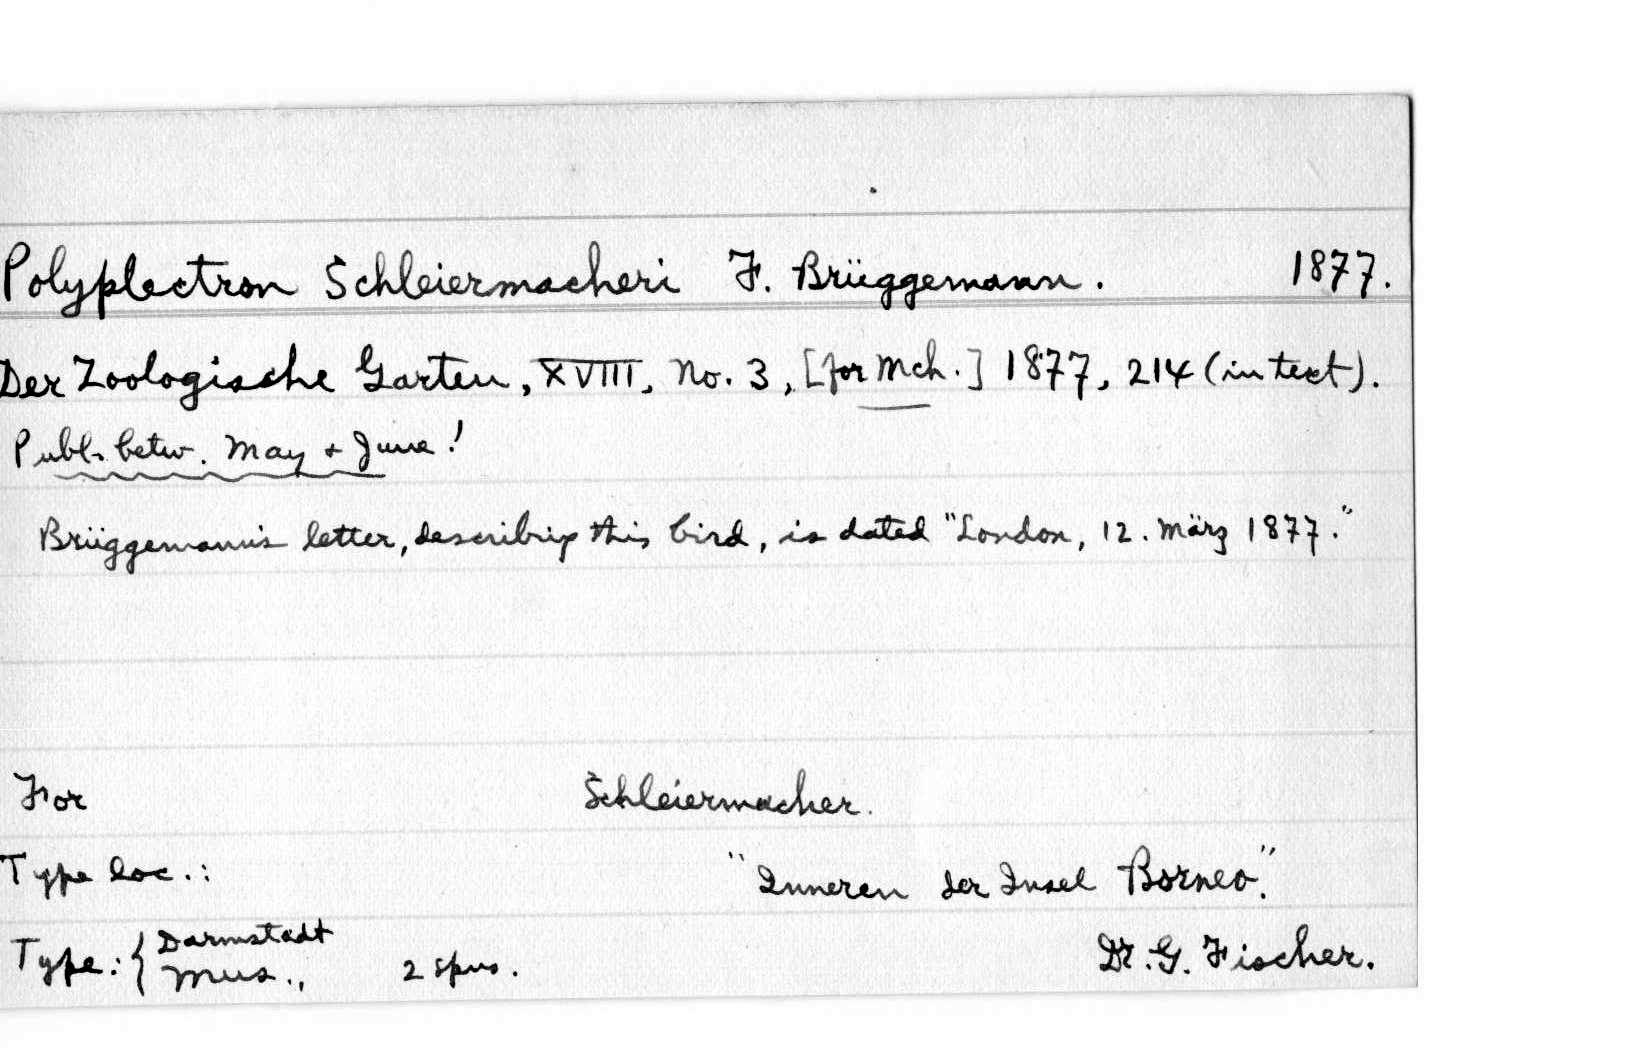 Polyplectron Schleiermacheri F. Brüggemann. 1877.
Der Zoologische Garten, XVIII, No. 3, [for Mch.] 1877, 214 (in text).
Publ. betw. May + June!
Brüggemann's letter, describing this bird, is dated "London, 12. März 1877."
For Schleiermacher.
Type loc.: "Inneren der Insel Borneo".
Type: { Darmstadt Mus., 2 spns. Dr. G. Fischer.